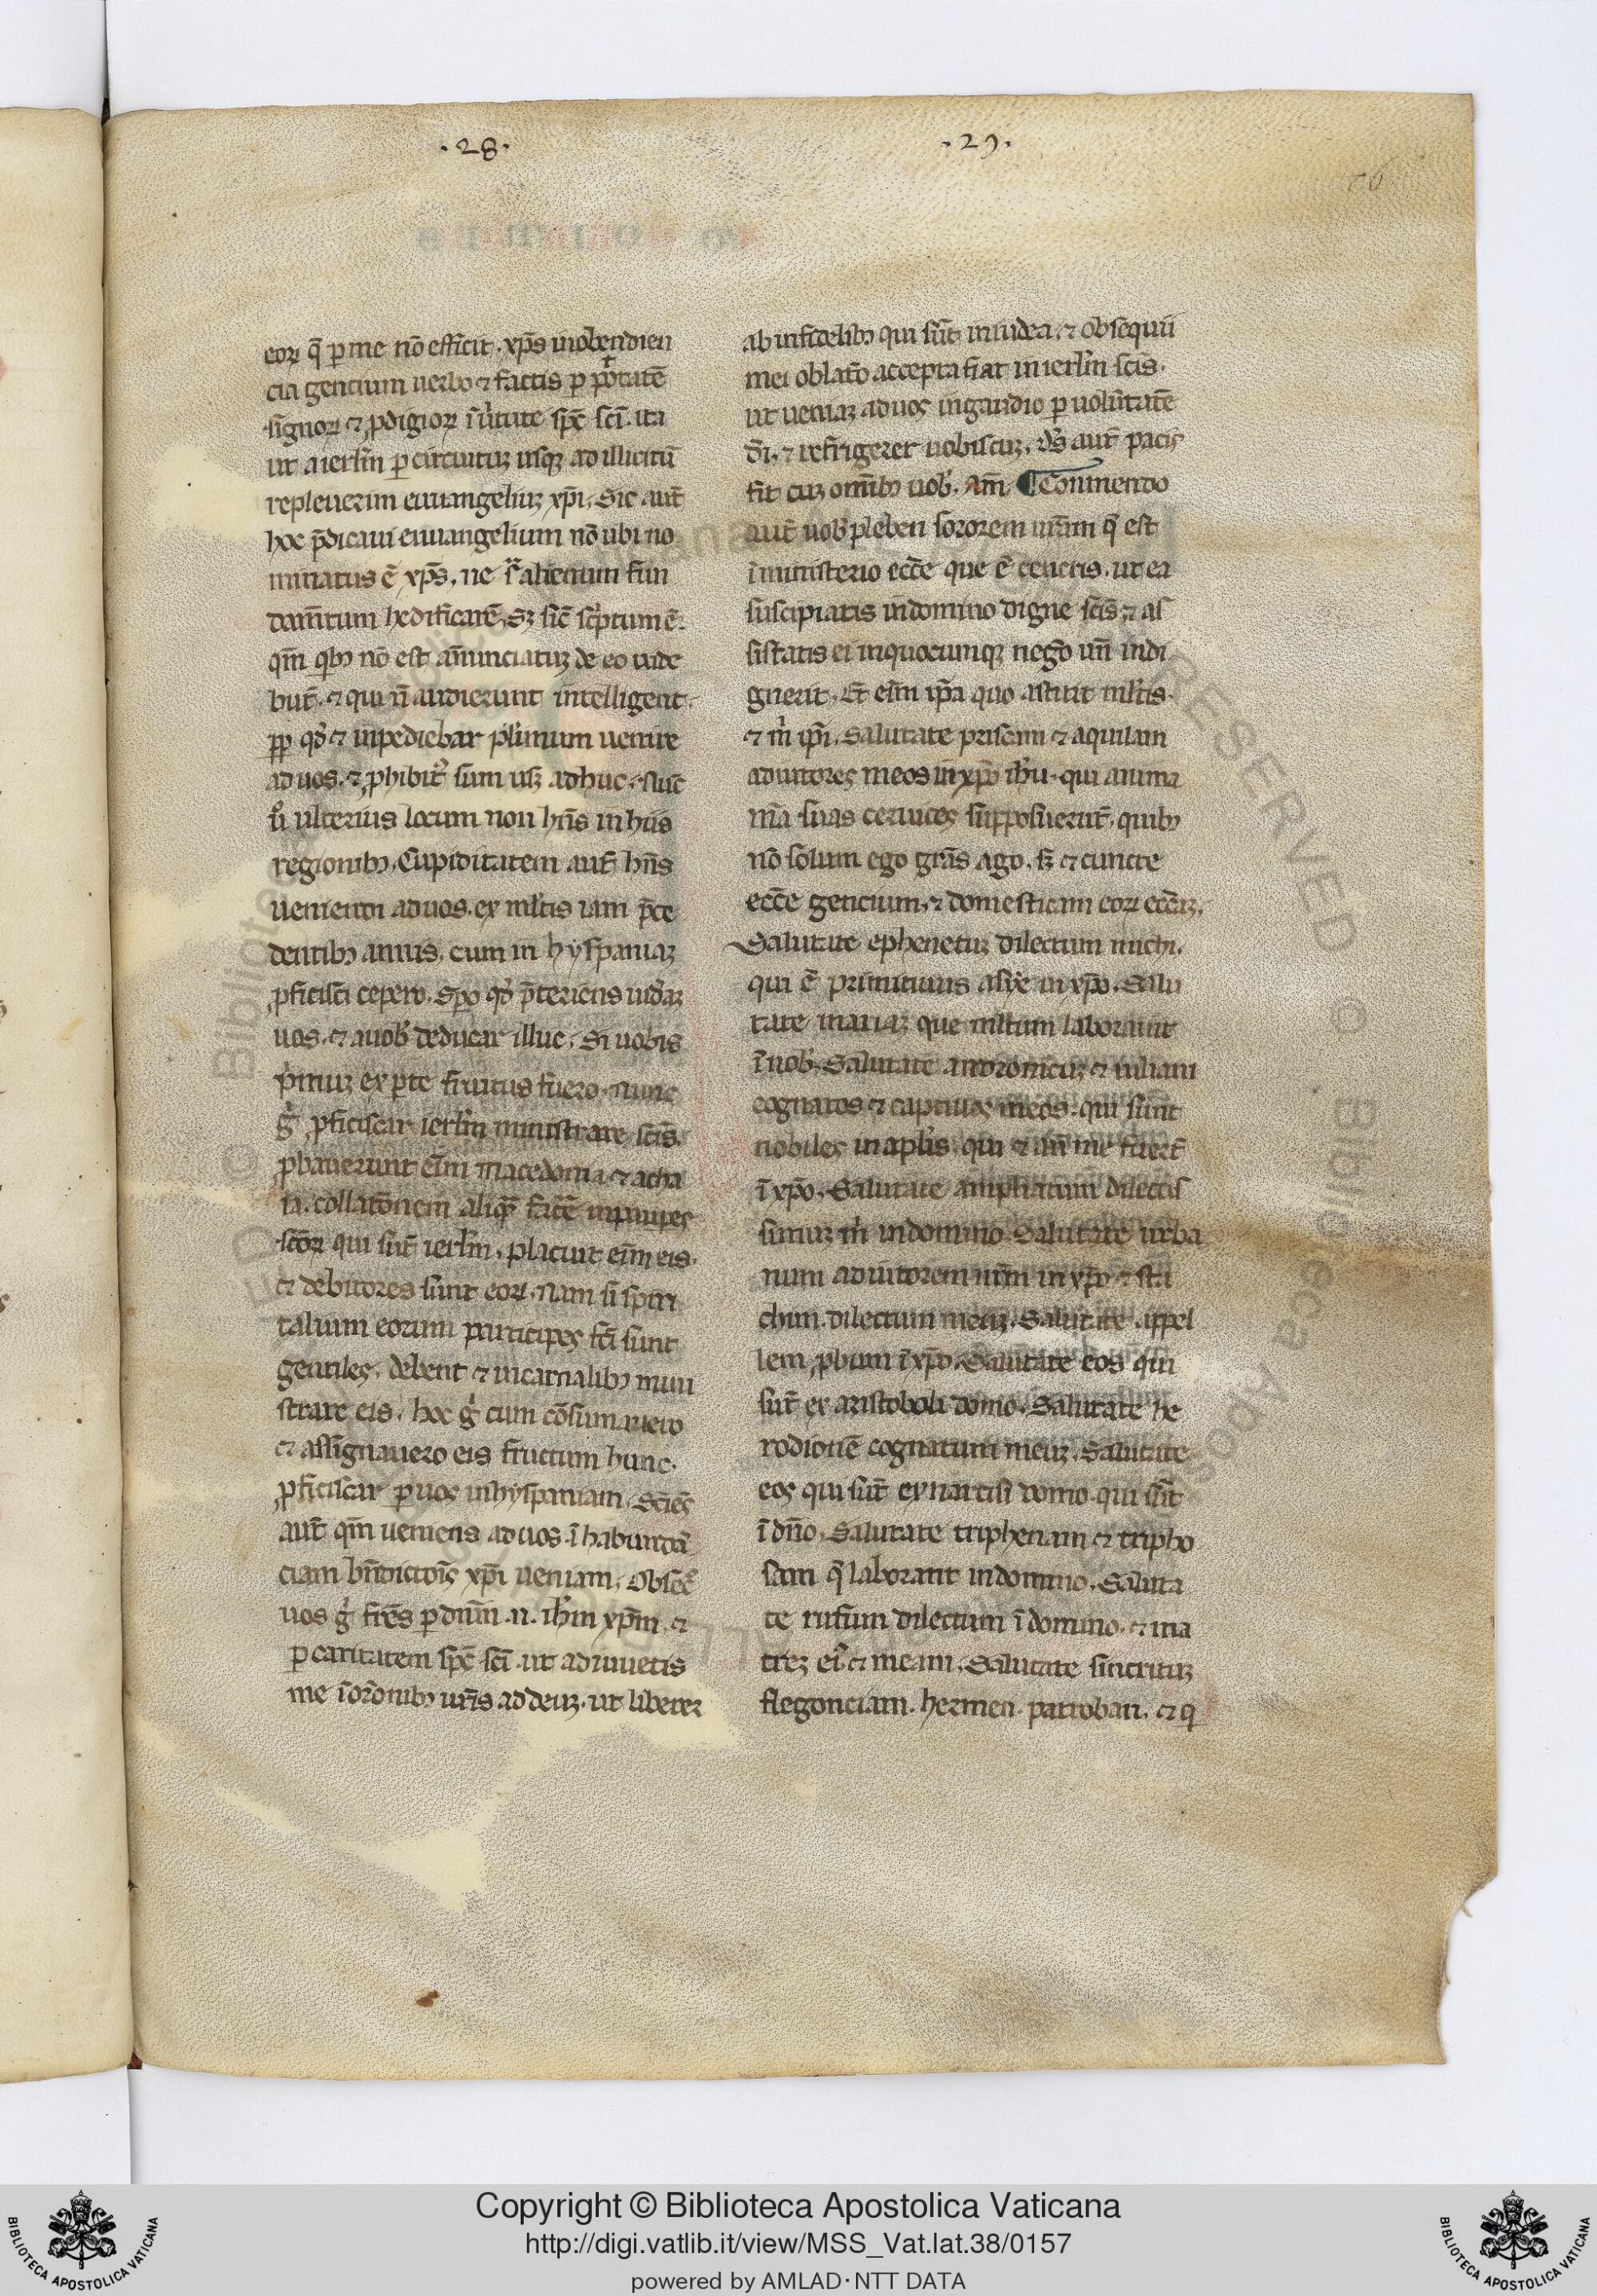 .28.
.29.
eoꝝ q̄ ꝑ me nō efficit. xp̄s in obendien
cia gentium uerbo ⁊ factis ꝑ p̄tatē
signoꝝ ⁊ ꝓdigioꝝ ī uʼtute sp̄c sc̄i. ita
ut a ierlm̄ ꝑ circuituꝫ usqꝫ ad illiricū
repleuerim euuangeliuꝫ xp̄i. Sic aut̄
hoc p̄dicaui euuangelium nō ubi no
minatus ē xp̄s. ne sʳ alienum fun
dam̄tum hedificarē. Sꝫ sic̄ scʼptum ē.
qm̄ qʼbꝫ nō est an̄unciatuꝫ de eo uide
būt. ⁊ qui n̄ audierunt intelligent.
ꝓp qd̓ ⁊ inpediebar plʼimum uenire
ad uos. ⁊ ꝓhibitꝰ sum usqꝫ adhuc. Nūc
u̓o ulterius locum non hn̄s in hiis
regionibꝫ. Cupiditatem aut̄ hn̄s
ueniendi ad uos. ex mltis iam p̄ce
dentibꝫ annis. cum in hyspaniaꝫ
ꝓficisci cepero. Spo qd̓ p̄teriens uideaꝫ
uos. ⁊ a uob̓ deducar illuc. Si uobis
pʼmuꝫ ex ꝑte fruitus fuero. Nunc
gʼ ꝓficiscar ierlm̄ ministrare sc̄is.
ꝓbauerunt eim̄ macedonia ⁊ acha
ia. collatōnem aliqᵃ facē in pauꝑes
sc̄oꝝ qui sūt ierlm̄. placuit eim̄ eis.
⁊ debitores sunt eoꝝ. Nam si spiri
talium eorum participes fc̄i sunt
gentiles. debent ⁊ in carnalibꝫ mini
strare eis. hoc gʼ cum cōsumauero
⁊ assignauero eis fructum hunc.
ꝓficiscar ꝑ uos in hyspaniam. Sciēs
aut̄ qm̄ ueniens ad uos. ī habundā
ciam bn̄dictōis xp̄i ueniam. Obsecᵒ
uos gʼ fr̄es ꝑ dnm̄ .n. ihm̄ xpm̄. ⁊
ꝑ caritatem sp̄c sc̄i. ut adiuuetis
me ī orōnibꝫ ur̄is ad deuꝫ. ut liberer
ab infidelibꝫ qui sūt in iudea. ⁊ obsequii
mei oblatō accepta fiat in ierlm̄ sc̄is.
ut ueniaꝫ ad uos in gaudio ꝑ uolūtatē
dī. ⁊ refrigerer uobiscuꝫ. d̓s aut̄ pacis
sit cuꝫ om̄ibꝫ uob̓. Am̄. ¶ Commendo
aut̄ uob̓ pheben sororem nr̄am q̄ est
ī ministerio ecc̄e que ē cencris. ut ea
suscipiatis in domino digne sc̄is ⁊ as
sistatis ei in quocumqꝫ negō ur̄i indi
guerit. Et eim̄ ip̄a quo astitit mltis.
⁊ m̄ ip̄i. Salutate priscam ⁊ aquilam
adiutores meos in xp̄o ihu. qui anima
mea suas ceruices supposuerūt. quibꝫ
nō solum ego grās ago. sꝫ ⁊ cuncte
ecc̄e gencium. ⁊ domesticam eoꝝ ecc̄aꝫ.
Salutate ephenetuꝫ dilectum michi.
qui ē primitiuus asye in xp̄o. Salu
tate mariaꝫ que mltum laborauit
ī uob̓. Salutate andronicuꝫ ⁊ iuliam
cognatos ⁊ captiuos meos. qui sunt
nobiles in aplis. qui ⁊ an̄ me fuert̄
ī xp̄o. Salutate ampliatum dilectis
simuꝫ m̄ in domino. Salutate urba
num adiutorem nr̄m in xp̄o ⁊ sta
chim. dilectum meuꝫ. Salutate appel
lem ꝓbum ī xp̄o. Salutate eos qui
sūt ex aristoboli domo. Salutate he
rodionē cognatum meuꝫ. Salutate
eos qui sūt ex narcisi domo. qui sūt
ī dn̄o. Salutate triphenam ⁊ tripho
sam q̄ laborant in domino. Saluta
te rufum dilectum ī domino. ⁊ ma
treꝫ eiꝰ ⁊ meam. Salutate sincrituꝫ
flegonciam. hermen. patroban. ⁊ q
Copyright © Biblioteca Apostolica Vaticana
http://digi.vatlib.it/view/MSS_Vat.lat.38/0157
powered by AMLAD·NTT DATA
BIBLIOTECA APOSTOLICA VATICANA
BIBLIOTECA APOSTOLICA VATICANA